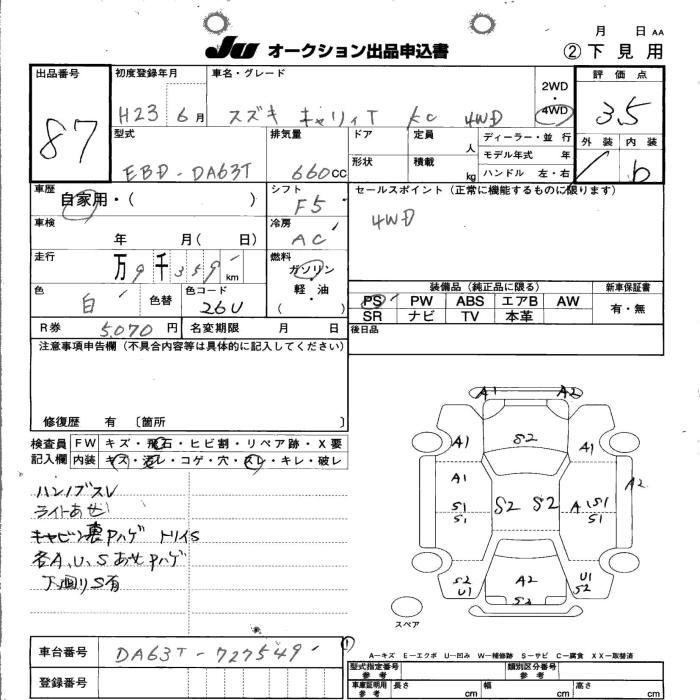 月 日 AA
JU オークション出品申込書 ②下見用
出品番号 初度登録年月 車名・グレード 2WD・4WD 評価点
87 H23 6月 スズキ キャリィT KC 4WD 3.5
型式 排気量 ドア 定員 人 ディーラー・並行 外装 内装
EBD-DA63T 660CC 形状 積載 kg モデル年式 年 b
ハンドル 左・右
車歴 自家用・( ) シフト F5 セールスポイント(正常に機能するものに限ります)
4WD
車検 年 月( 日) 冷房 AC
走行 万9千359km 燃料 ガソリン・軽油・( )
色 白 色替 色コード 26U
装備品(純正品に限る) 新車保証書
PS PW ABS エアB AW 有・無
SR ナビ TV 本革
R券 5,070円 名変期限 月 日 後日品
注意事項申告欄(不具合内容等は具体的に記入してください)
修復歴 有 〔箇所 〕
検査員記入欄 FW キズ・飛石・ヒビ割・リペア跡・X要
内装 キズ・汚レ・コゲ・穴・スレ・キレ・破レ
ハンノブスレ
ライトあせ
キャビン裏Pハゲ トリイS
各A、U、SあせPハゲ
下廻りS有
A1 A2
S2
A1 A1
A1 A2
S1 S2 S2 A1 S1
S1 S1
S2 A2 U1
U1 S2 S2
スペア
車台番号 DA63T-727549
登録番号
①
A―キズ E―エクボ U―凹み W―補修跡 S―サビ C―腐食 XX―取替済
型式指定番号 参考 類別区分番号 参考
車庫証明用 参考 長さ cm 幅 cm 高さ cm